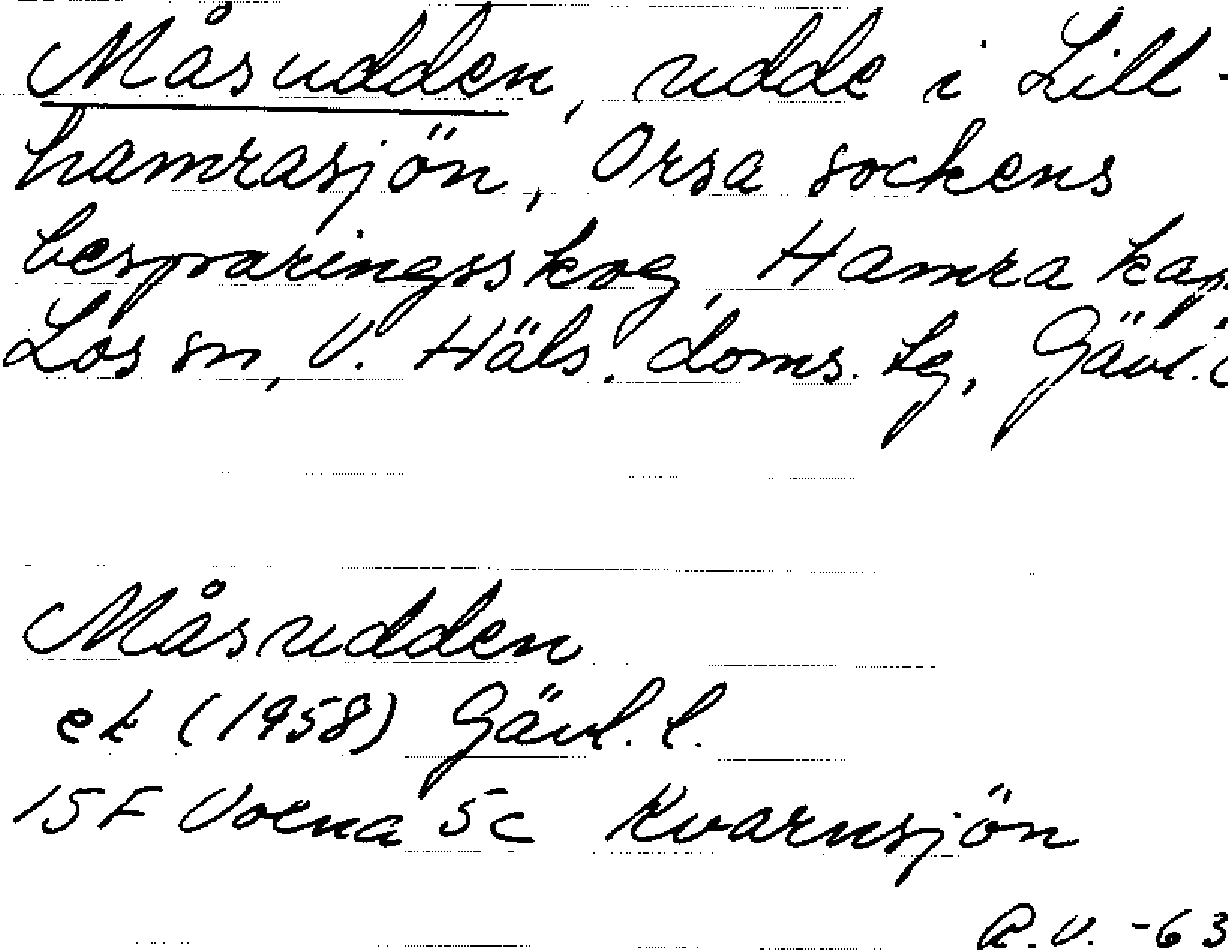 Måsudden, udde i Lill-
hamrasjön, Orsa sockens
besparingsskog, Hamra kap.
Los sn, V. Häls. doms. tg, Gävl. l
Måsudden
ek (1958) Gävl. l.
15F Voxna 5c Kvarnsjön
R.V. -63